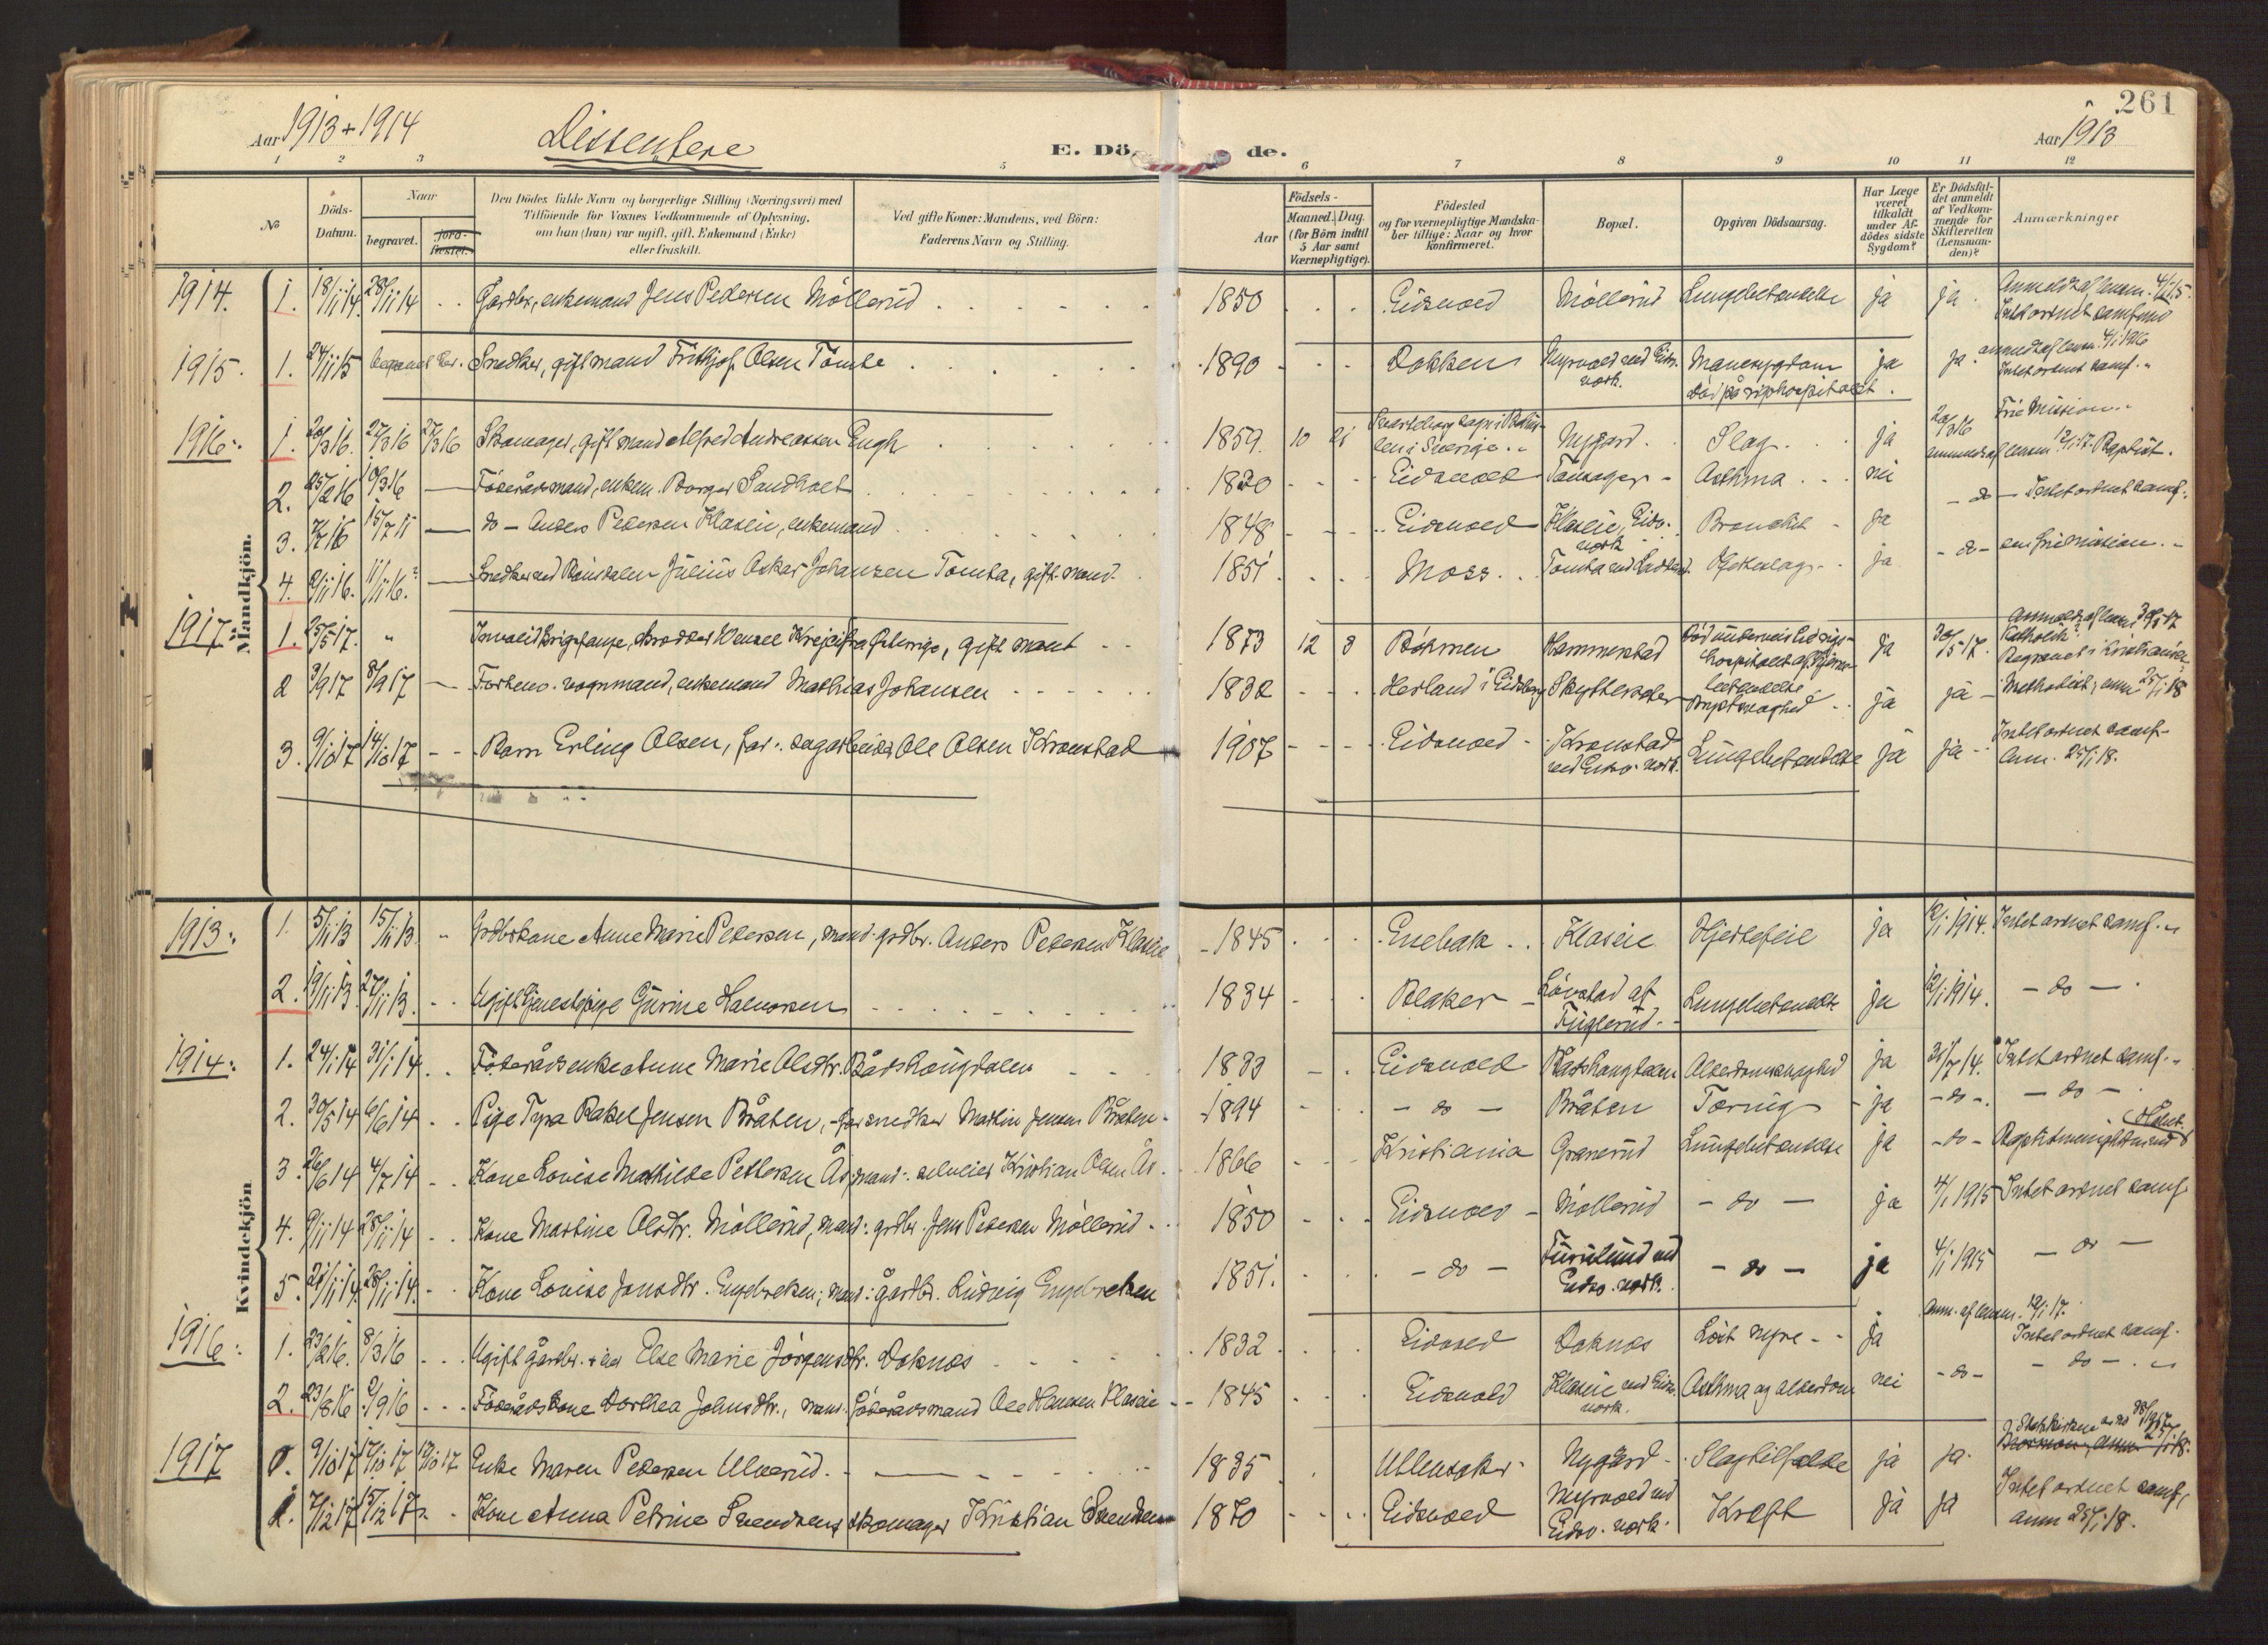 261
Aar 1913 + 1914
Dissentere
E. Dö
de.
Aar 1913
1 2 3 5 6 7 8 9 10 11 12
№
Döds-
Datum.
Naar
begravet.
jord-
fæstet.
Den Dödes fulde Navn og borgerlige Stilling (Næringsvei) med
Tilföiende for Voxnes Vedkommende af Oplysning,
om han (hun) var ugift, gift, Enkemand (Enke)
eller fraskilt.
Ved gifte Koner: Mandens, ved Börn:
Faderens Navn og Stilling.
Aar
Födsels-
Maaned. Dag.
(for Börn indtil
5 Aar samt
Værnepligtige).
Födested
og for værnepligtige Mandska-
ber tillige: Naar og hvor
konfirmeret.
Bopæl.
Opgiven Dödsaarsag.
Har Læge
været
tilkaldt
under Af-
dödes sidste
Sygdom?
Er Dödsfal-
det anmeldt
af Vedkom-
mende for
Skifteretten
(Lensman-
den)?
Anmærkninger
Mandkjön.
1914. 1. 18/11 14 28/11 14 Gårdbr., enkemand Jens Pedersen Möllerud 1850 Eidsvold Möllerud Lungebetændelse ja ja. Anmeldt af lensm. 4/1 15.
Intet ordnet samfund
1915. 1. 24/11 15 Snedker, gift mand Frithjof Olsen Tömte 1890 Dokken Myrvold ved Eidsv. verk. Mavesygdom ja ja. anmeldt af lensm. 4/1 1916
Död på rigshospitalet. Intet ordnet samf.
1916. 1. 20/3 16. 27/3 16 27/3 16 Skomager, gift mand Alfred Andreassen Engh 1859. 10 21 i Sverige Nygard. Slag. ja 20/3 16 Fri Mission
anmeldt af lensm. 12/1 17. Baptist.
2. 25/2 16 10/3 16 — Föderådsmand, enkem. Borger Sandholt 1820 Eidsvold Tånsager Asthma nei
3. 7/7 16 15/7 11 — do — Anders Pedersen Klaseie, enkemand 1848 Eidsvold Klaseie, Eidsv. verk Bronchit ja - do - Intet ordnet samf.
4. 2/11 16. 11/11 16. — Snedker ved Julius Oskar Johansen Tomta, gift mand. 1851 Moss. Tomta ved Hjerteslag ja - do - en frimission.
1917. 1. 25/5 17. " Invalid Krigsfange, Wenzel Krejci fra , gift mand 1873 12 8 Böhmen Hammerstad Död underveis til rigs-
hospitalet af ja 30/5 17. Anmeldt af lensm. 30/5 17
Katholik.
Begravet i Kristiania
2 3/9 17 8/9 17 — Forhenv. vognmand, enkemand Mathias Johansen 1832 Herland i Eidsberg Skytterseter ja ja Methodist, anm. 25/1 18
3. 9/10 17 14/10 17 - - Barn Erling Olsen, far: sagarbeider Ole Olsen Kronstad 1907 Eidsvold Kronstad
ved Eidsv. verk. Lungebetændelse ja ja Intet ordnet samf.
Anm. 25/1 18.
Kvindekjön
1913. 1. 5/11 13 15/11 13 " Grdbrkone Anne Marie Pedersen, mand: grdbr. Anders Pedersen Klaseie 1845 Enebak Klaseie Hjertefeil ja 12/1 1914. Intet ordnet samf.
2. 19/11 13 27/11 13. Ugift tjenestepige Gurine Halvorsen 1834 Blaker Lövstad af
Fuglerud. Lungebetændelse ja 12/1 1914. - do -
1914. 1. 24/1 14 31/1 14 Föderådsenke Anne Marie Olsdtr. Bårshaugdalen 1833 Eidsvold Bårshaugdalen Alderdomssvaghed ja 31/7 14. Intet ordnet samf.
2. 30/5 14 6/6 14 Pige Tyra Rakel Jensen Bråten, far snedker Martin Jensen Bråten. 1894 - do - Bråten Tæring ja - do - - do -
3. 26/6 14 4/7 14 Kone Lovise Mathilde Pettersen Ås, mand: selveier Kristian Olsen Ås. 1866 Kristiania Granerud Lungebetændelse ja - do - Baptistmenigheden
4. 9/11 14 28/11 14 Kone Martine Olsdtr. Möllerud, mand: grdbr. Jens Pedersen Möllerud 1850 Eidsvold Möllerud - do - ja 4/1 1915 Intet ordnet samf.
5. 21/11 14. 28/11 14. Kone Lovise Jonsdtr. Engebretsen, mand: gårdbr. Ludvig Engebretsen 1851. - do - Furulund ved
Eidsv. verk. - do - ja 4/1 1915 - do -
1916. 1. 23/2 16. 8/3 16 Ugift gårdbr. Else Marie Jörgensdtr. Doknæs 1832 Eidsvold Doknæs Löst nyre ja Anm. af lensm. 12/1 17.
Intet ordnet samf.
2. 23/8 16 2/9 16 Föderådskone Dorthea Johnsdtr., mand: föderådsmand Ole Hansen Klaseie 1845 Eidsvold Klaseie ved Eidsv.
verk. Asthma og alderdom nei - do - - do -
1917 1. 9/10 17 17/10 17 17/10 17 Enke Maren Pedersen Ulverud. 1835 Ullensaker Nygård Slagtilfælde ja ja.
2. 7/12 17 15/12 17 Kone Anna Petrine Svendsen, skomager Kristian Svendsen 1870 Eidsvold Myrvold ved
Eidsv. verk. Kræft ja ja Intet ordnet samf.
anm 25/1 18.